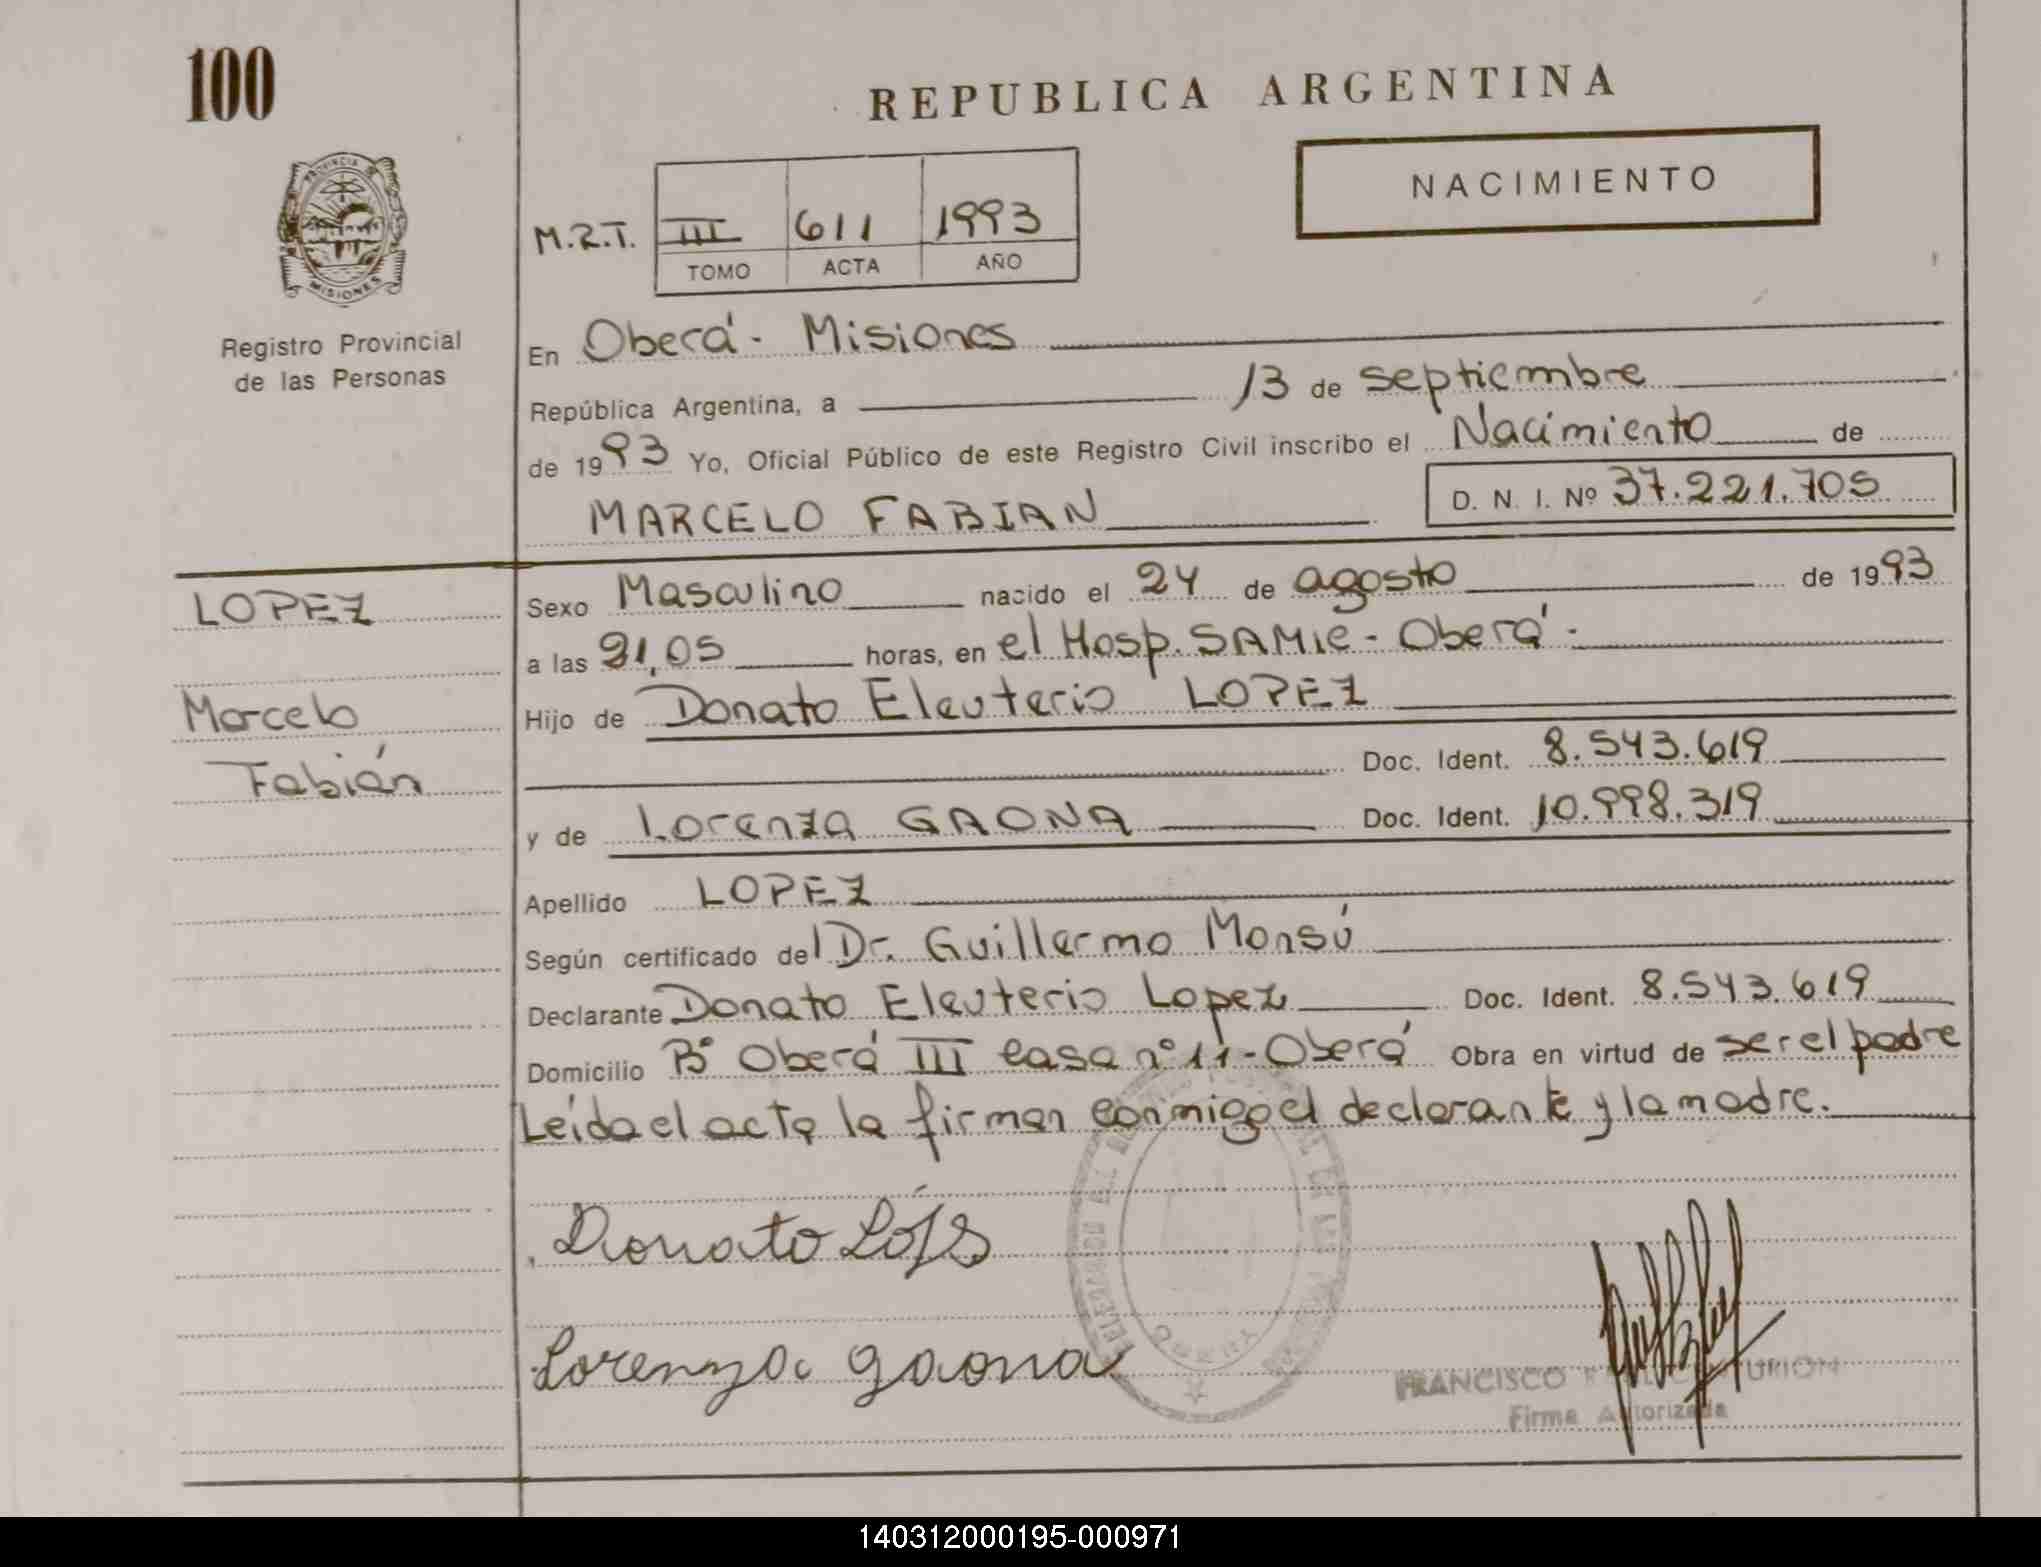 100
REPUBLICA ARGENTINA
NACIMIENTO
PROVINCIA DE
MISIONES
Registro Provincial
de las Personas
M.R.T. III 611 1993
TOMO ACTA AÑO
En Oberá - Misiones
República Argentina, a 13 de septiembre
de 1993 Yo, Oficial Público de este Registro Civil inscribo el Nacimiento de
MARCELO FABIAN D. N. I. Nº 37.221.705
LOPEZ
Marcelo
Fabián
Sexo Masculino nacido el 24 de agosto de 1993
a las 21,05 horas, en el Hosp. SAMIC - Oberá -
Hijo de Donato Eleuterio LOPEZ
Doc. Ident. 8.543.619
y de Lorenza GAONA Doc. Ident. 10.998.319
Apellido LOPEZ
Según certificado del Dr. Guillermo Monsú
Declarante Donato Eleuterio Lopez Doc. Ident. 8.543.619
Domicilio Bº Oberá III casa nº 11 - Oberá Obra en virtud de ser el padre
Leída el acta la firman conmigo el declarante y la madre.
Donato
Lorenza gaona
FRANCISCO
Firma Autorizada
140312000195-000971